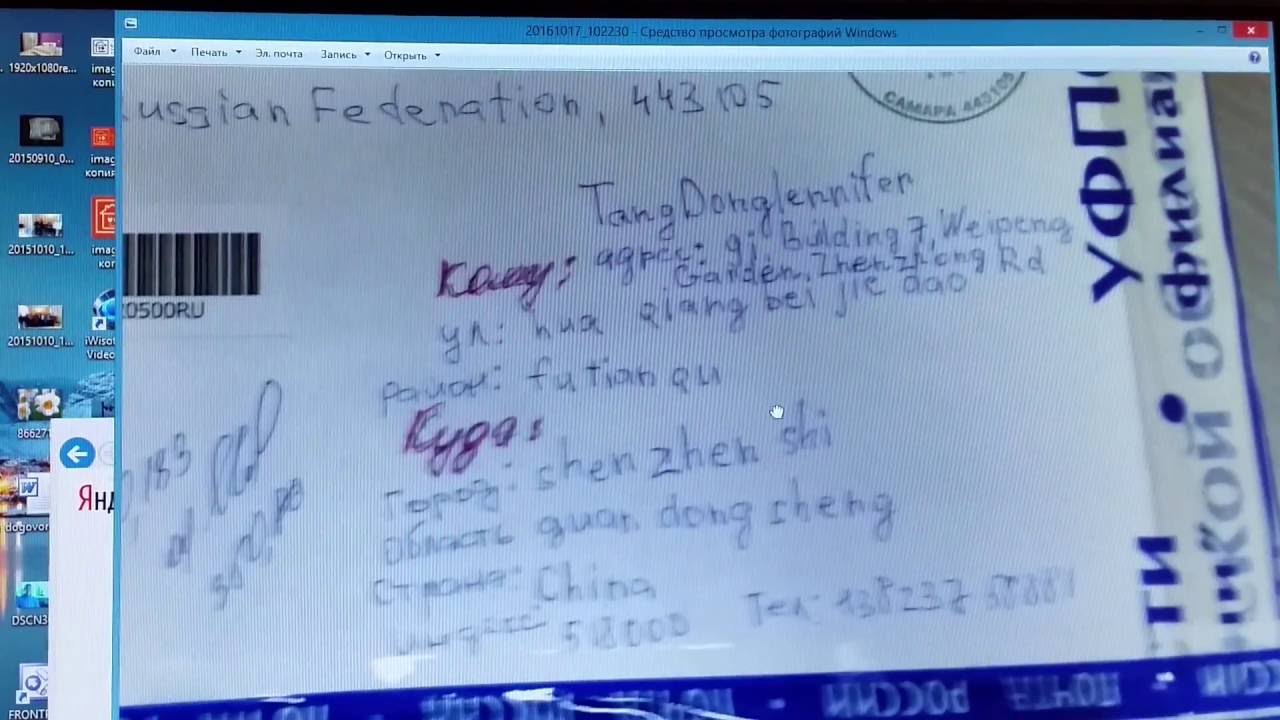 20161017_102230 - Средство просмотра фотографий Windows
Файл Печать Эл. почта Запись Открыть
1920x1080re...
20150910_0...
20151010_1...
20151010_1...
866271
dogovor
DSCN3
FRONTF
imag
копи
imag
копия
imag
коп
iWisot
Video
Янд
ussian Federation, 443105
САМАРА 443105
0500RU
TangDonglennifer
Кому: адрес: gj Bulding 7, Weipeng
Garden, Zhenzhong Rd
ул: hua qiang bei jie dao
район: fu tian qu
Куда:
город: shen zhen shi
область guan dong sheng
Страна: China
индекс 518000 Тел:
УФПС
филиа
ПОЧТА РОССИИ